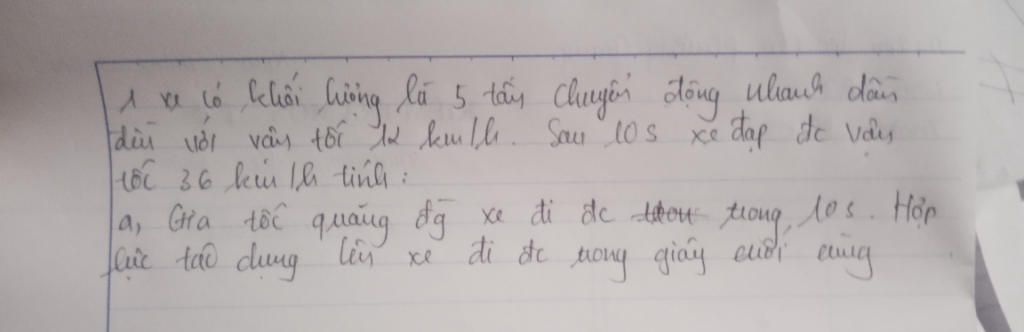 1 xe có khối lượng là 5 tấn chuyển động nhanh dần
đều với vận tốc 12 km/h. Sau 10s xe đạp đc vận
tốc 36 km/h tính:
a, Gia tốc quãng đg xe đi đc trong 10s. Hợp
lực tác dụng lên xe đi đc trong giây cuối cùng